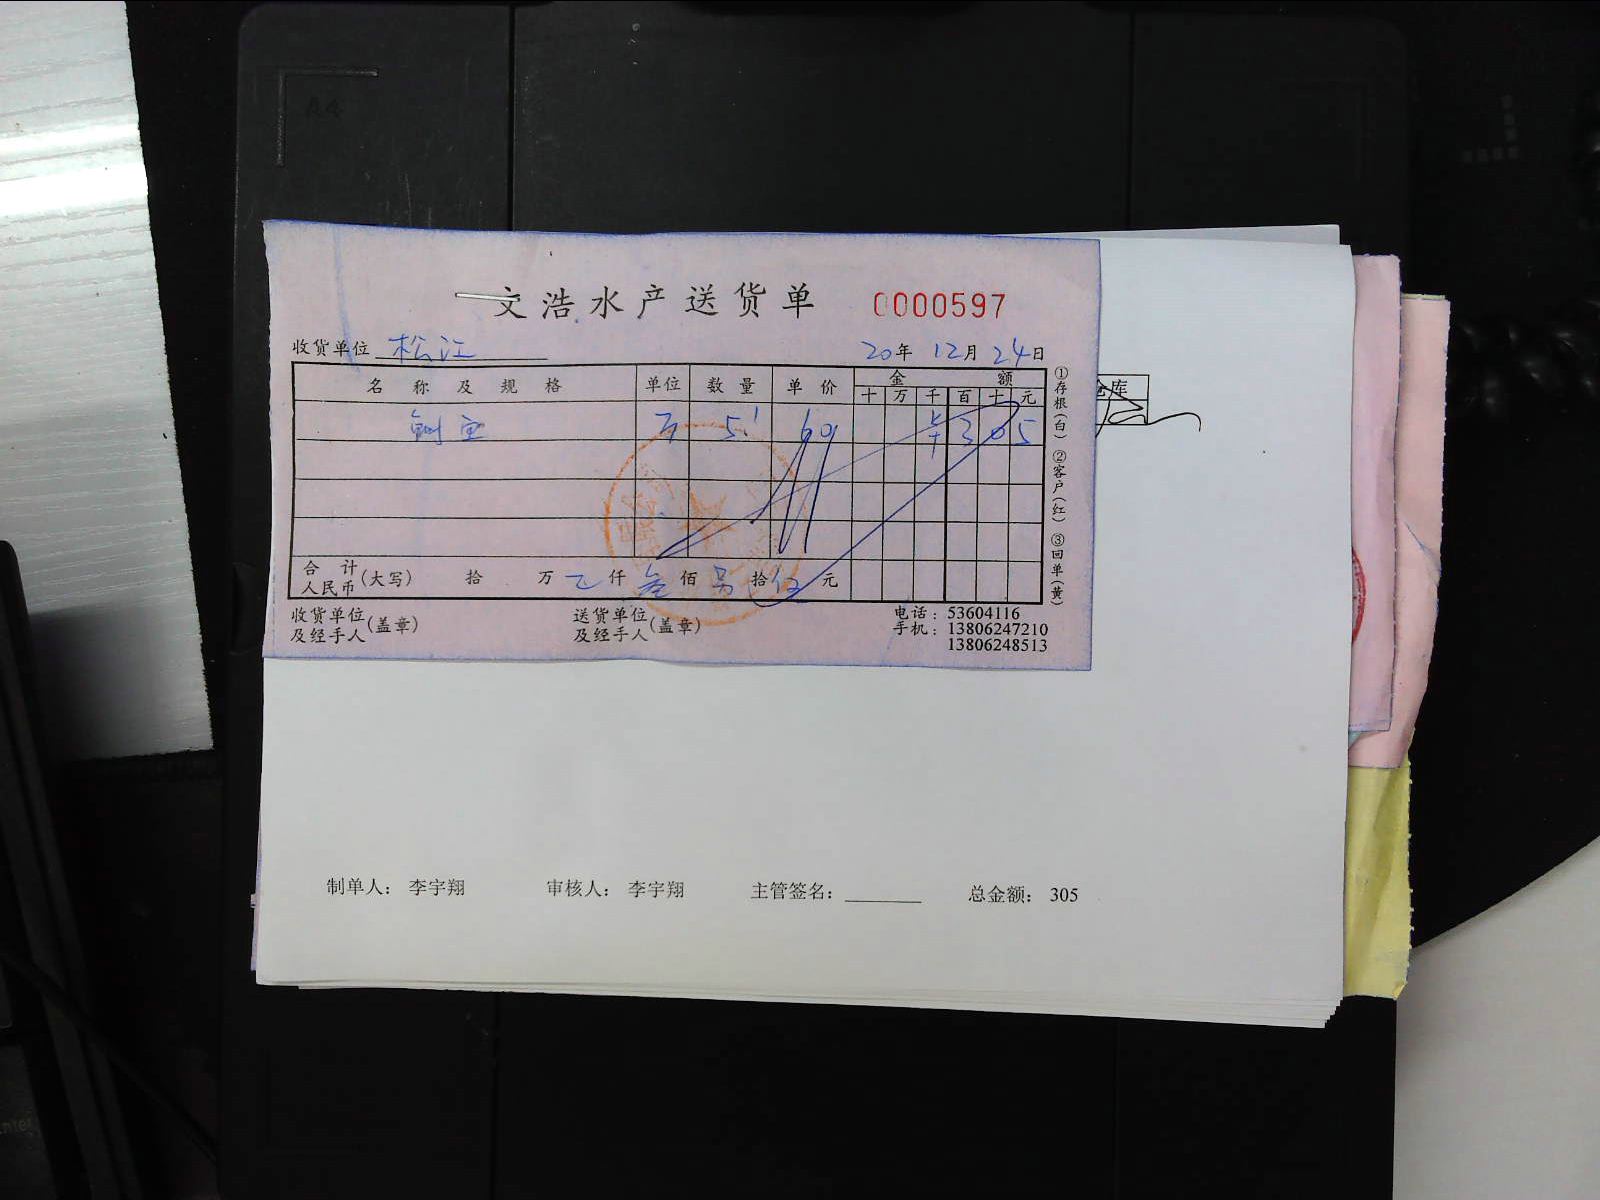 A4
文浩水产送货单 0000597
收货单位 松江 20年 12月 24日
名称及规格 单位 数量 单价 金额
十 万 千 百 十 元
5.1 60 3 0 5
合计人民币(大写) 拾 万 仟 叁 佰 另 拾 伍 元
①存根(白) ②客户(红) ③回单(黄)
收货单位及经手人(盖章) 送货单位及经手人(盖章)
电话：53604116
手机：13806247210
13806248513
仓库
制单人： 李宇翔 审核人： 李宇翔 主管签名： 总金额： 305